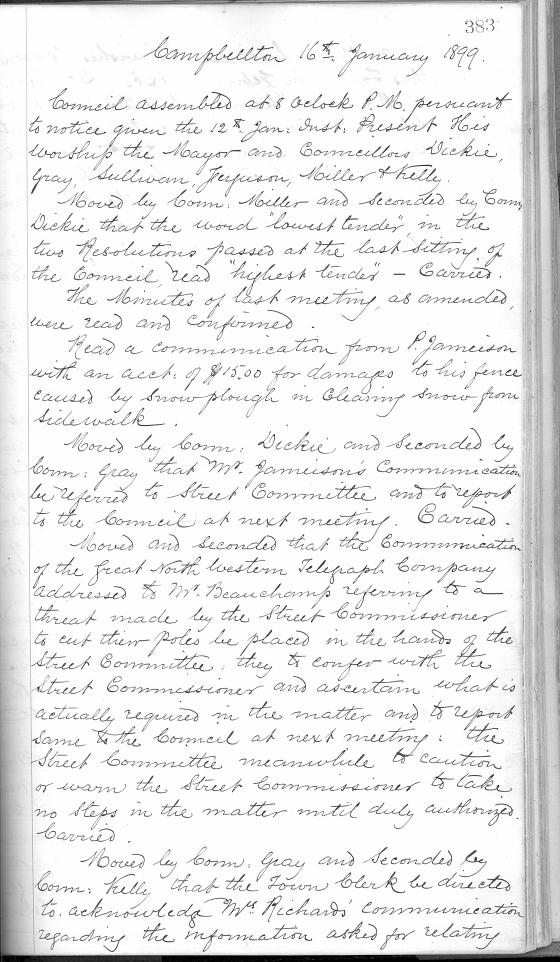 383
Campbellton 16th. January 1899.
Council assembled at 8 Oclock P.M. persuant
to notice given the 12th. Jan: Inst: Present His
worship the Mayor and Councillors Dickie,
Gray, Sullivan, Ferguson, Miller & Kelly.
Moved by Coun: Miller and seconded by Coun,
Dickie that the word "lowest tender", in the
two Resolutions passed at the last sitting of
the Council, read "highest tender" – Carried.
The Minutes of last meeting, as amended,
were read and confirmed.
Read a communication from P. Jameison
with an acct: of $15.00 for damages to his fence
caused by Snow plough in Clearing Snow from
Sidewalk.
Moved by Coun: Dickie and Seconded by
Coun: Gray that Mr. Jameison's Communication
be referred to Street Committee and to report
to the Council at next meeting. Carried.
Moved and Seconded that the Communication
of the Great North Western Telegraph Company
addressed to Mr. Beauchamp referring to a
threat made by the Street Commissioner
to cut their Poles be placed in the hands of the
Street Committee; they to confer with the
Street Commissioner and ascertain what is
actually required in the matter and to report
same to the Council at next meeting: the
Street Committee meanwhile to caution
or warn the Street Commissioner to take
no Steps in the matter until duly authorized.
Carried.
Moved by Coun: Gray and Seconded by
Coun: Kelly that the Town Clerk be directed
to acknowledge Richards' communication
regarding the information asked for relating